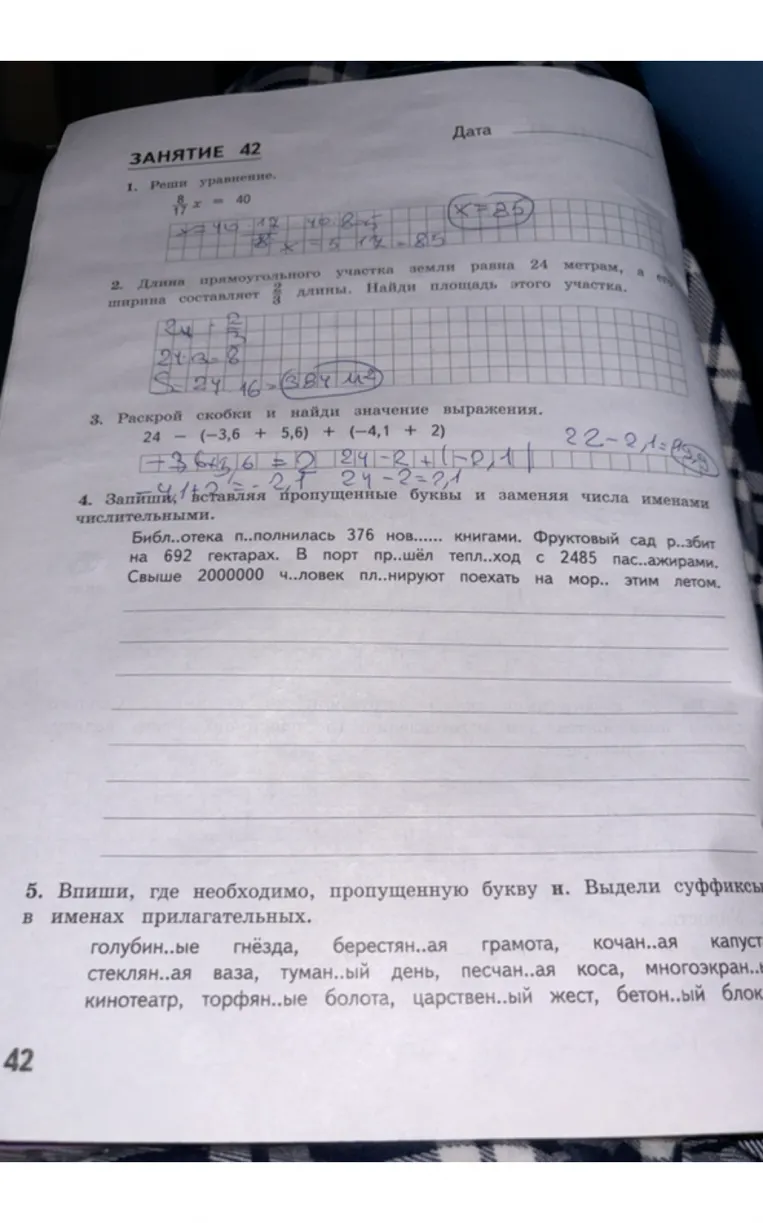 Дата
ЗАНЯТИЕ 42
1. Реши уравнение.
8/17 x = 40
x = 85
x = 5 17 = 85
2. Длина прямоугольного участка земли равна 24 метрам, а его
ширина составляет 2/3 длины. Найди площадь этого участка.
24 : 2/3
24:3=8
S= 24 16 = 384 м²
3. Раскрой скобки и найди значение выражения.
24 − (−3,6 + 5,6) + (−4,1 + 2)
22−2,1=19,9
24−2+(−2,1)
−4,1+2=−2,1 24−2=2,1
4. Запиши, вставляя пропущенные буквы и заменяя числа именами
числительными.
Библ..отека п..полнилась 376 нов...... книгами. Фруктовый сад р..збит
на 692 гектарах. В порт пр..шёл тепл..ход с 2485 пас..ажирами.
Свыше 2000000 ч..ловек пл..нируют поехать на мор.. этим летом.
5. Впиши, где необходимо, пропущенную букву н. Выдели суффиксы
в именах прилагательных.
голубин..ые гнёзда, берестян..ая грамота, кочан..ая капуст
стеклян..ая ваза, туман..ый день, песчан..ая коса, многоэкран..
кинотеатр, торфян..ые болота, царствен..ый жест, бетон..ый блок
42